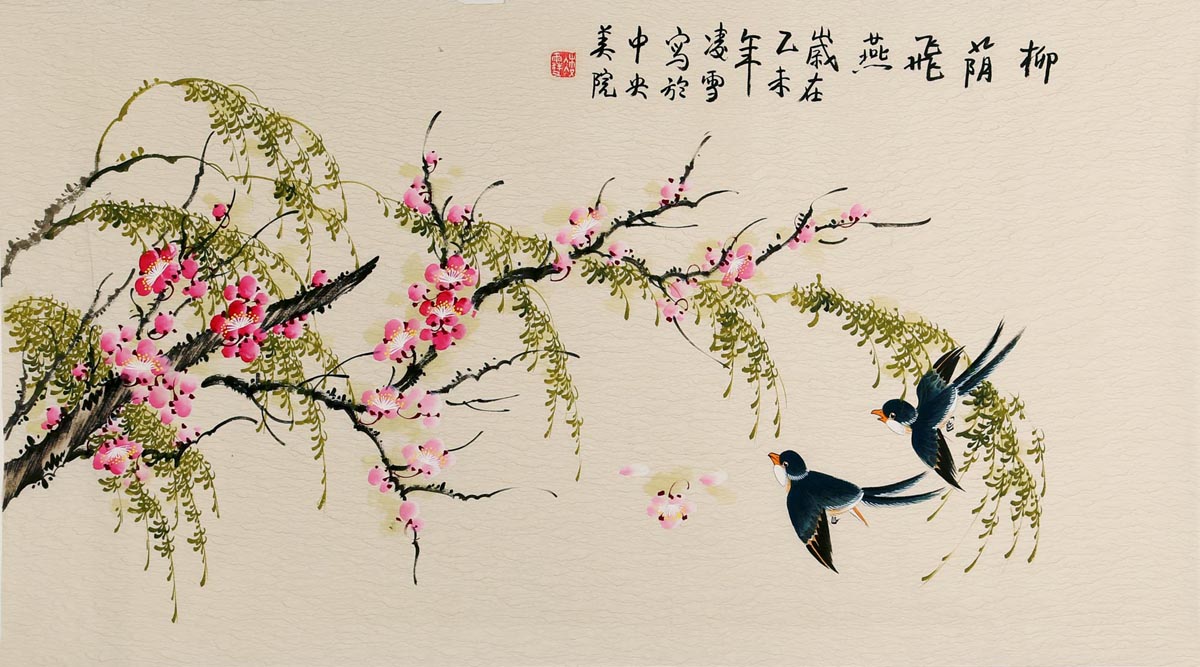 柳荫飞燕
岁在
乙未
年
凌雪
写於
中央
美院